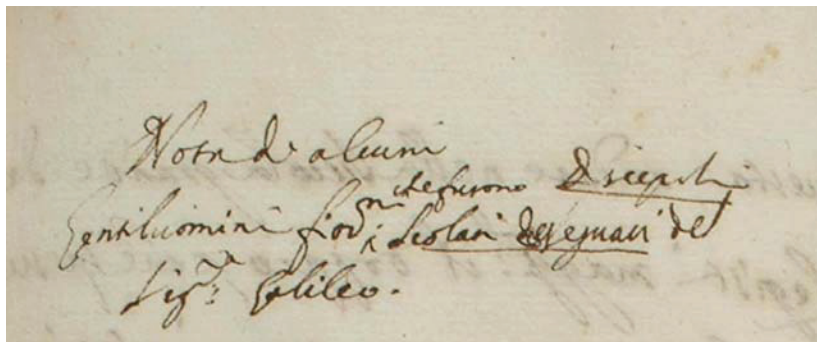 Nota d'alcuni
Gentiluomini fior.ni che furono Discepoli
i Scolari e seguaci del
Sig.r Galileo.